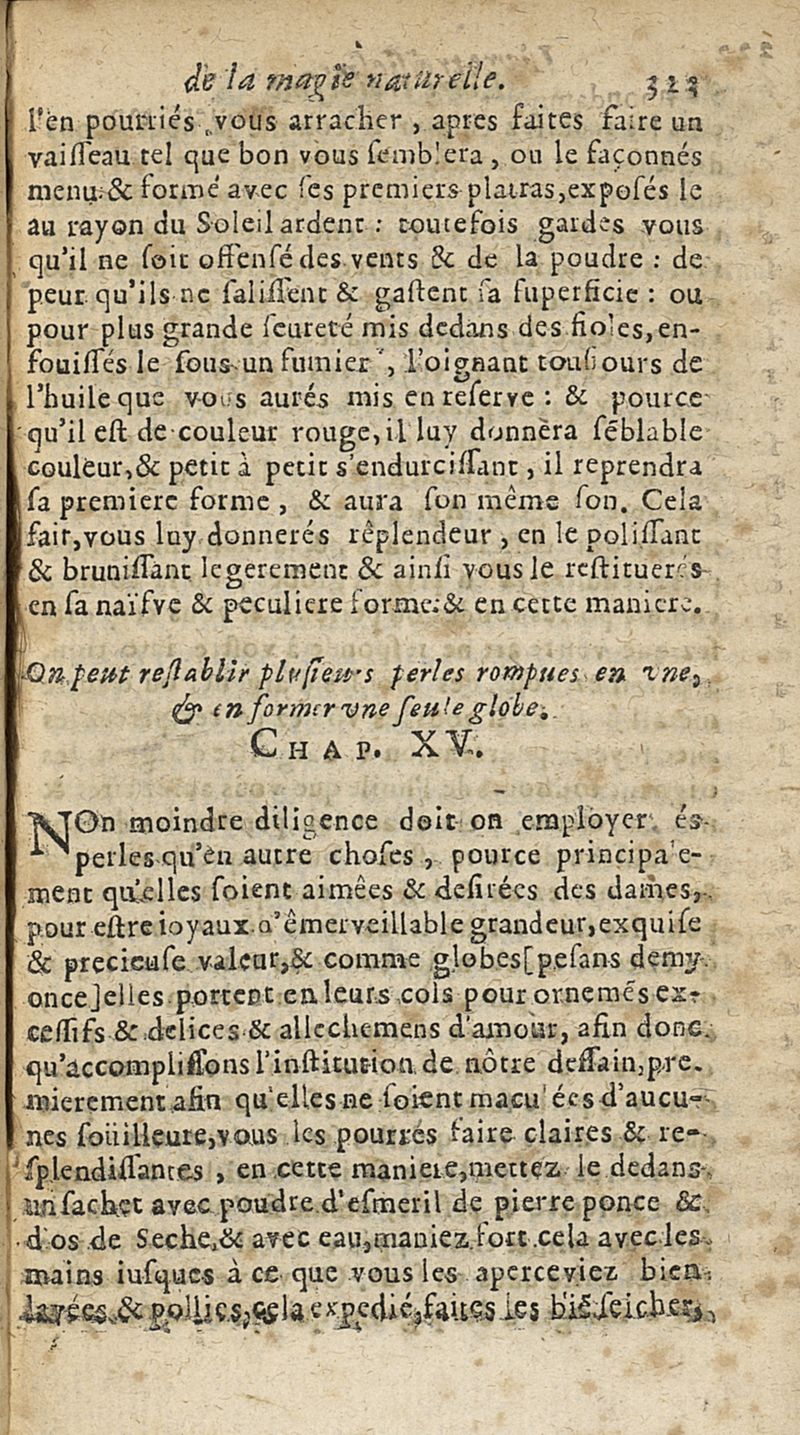 de la magie naturelle. 323
l'en pourriés vous arracher, apres faites faire un
vaisseau tel que bon vous semblera, ou le façonnés
menu & formé avec ses premiers platras, exposés le
au rayon du Soleil ardent : toutefois gardes vous
qu'il ne soit offensé des vents & de la poudre : de
peur qu'ils ne salissent & gastent sa superficie : ou
pour plus grande seureté mis dedans des fioles, en-
fouissés le sous un fumier, l'oignant tousiours de
l'huile que vous aurés mis en reserve : & pource
qu'il est de couleur rouge, il luy donnèra sẽblable
couleur, & petit à petit s'endurcissant, il reprendra
sa premiere forme, & aura son même son. Cela
fait, vous luy donnerés rêplendeur, en le polissant
& brunissant legerement & ainsi vous le restituerés
en sa naïfve & peculiere forme: & en cette maniere.
On peut restablir plusieurs perles rompues en vne,
& en former vne seule globe.
CHAP. XV.
NOn moindre diligence doit on employer és
perles qu'en autre choses, pource principale-
ment qu'elles soient aimées & desirées des dames,
pour estre ioyaux d'êmerveillable grandeur, exquise
& precieuse valeur, & comme globes [pesans demy
once] elles portent en leurs cols pour ornemẽs ex-
cessifs & delices & allechemens d'amour, afin donc
qu'accomplissons l'institution de nôtre dessain, pre-
mierement afin qu'elles ne soient maculées d'aucu-
nes soüilleure, vous les pourrés faire claires & re-
splendissantes, en cette maniere, mettez le dedans
un sachet avec poudre d'esmeril de pierre ponce &
d'os de Seche, & avec eau, maniez fort cela avec les
mains iusques à ce que vous les aperceviez bien
lavées & pollies, cela expedié, faites les biẽ seicher,